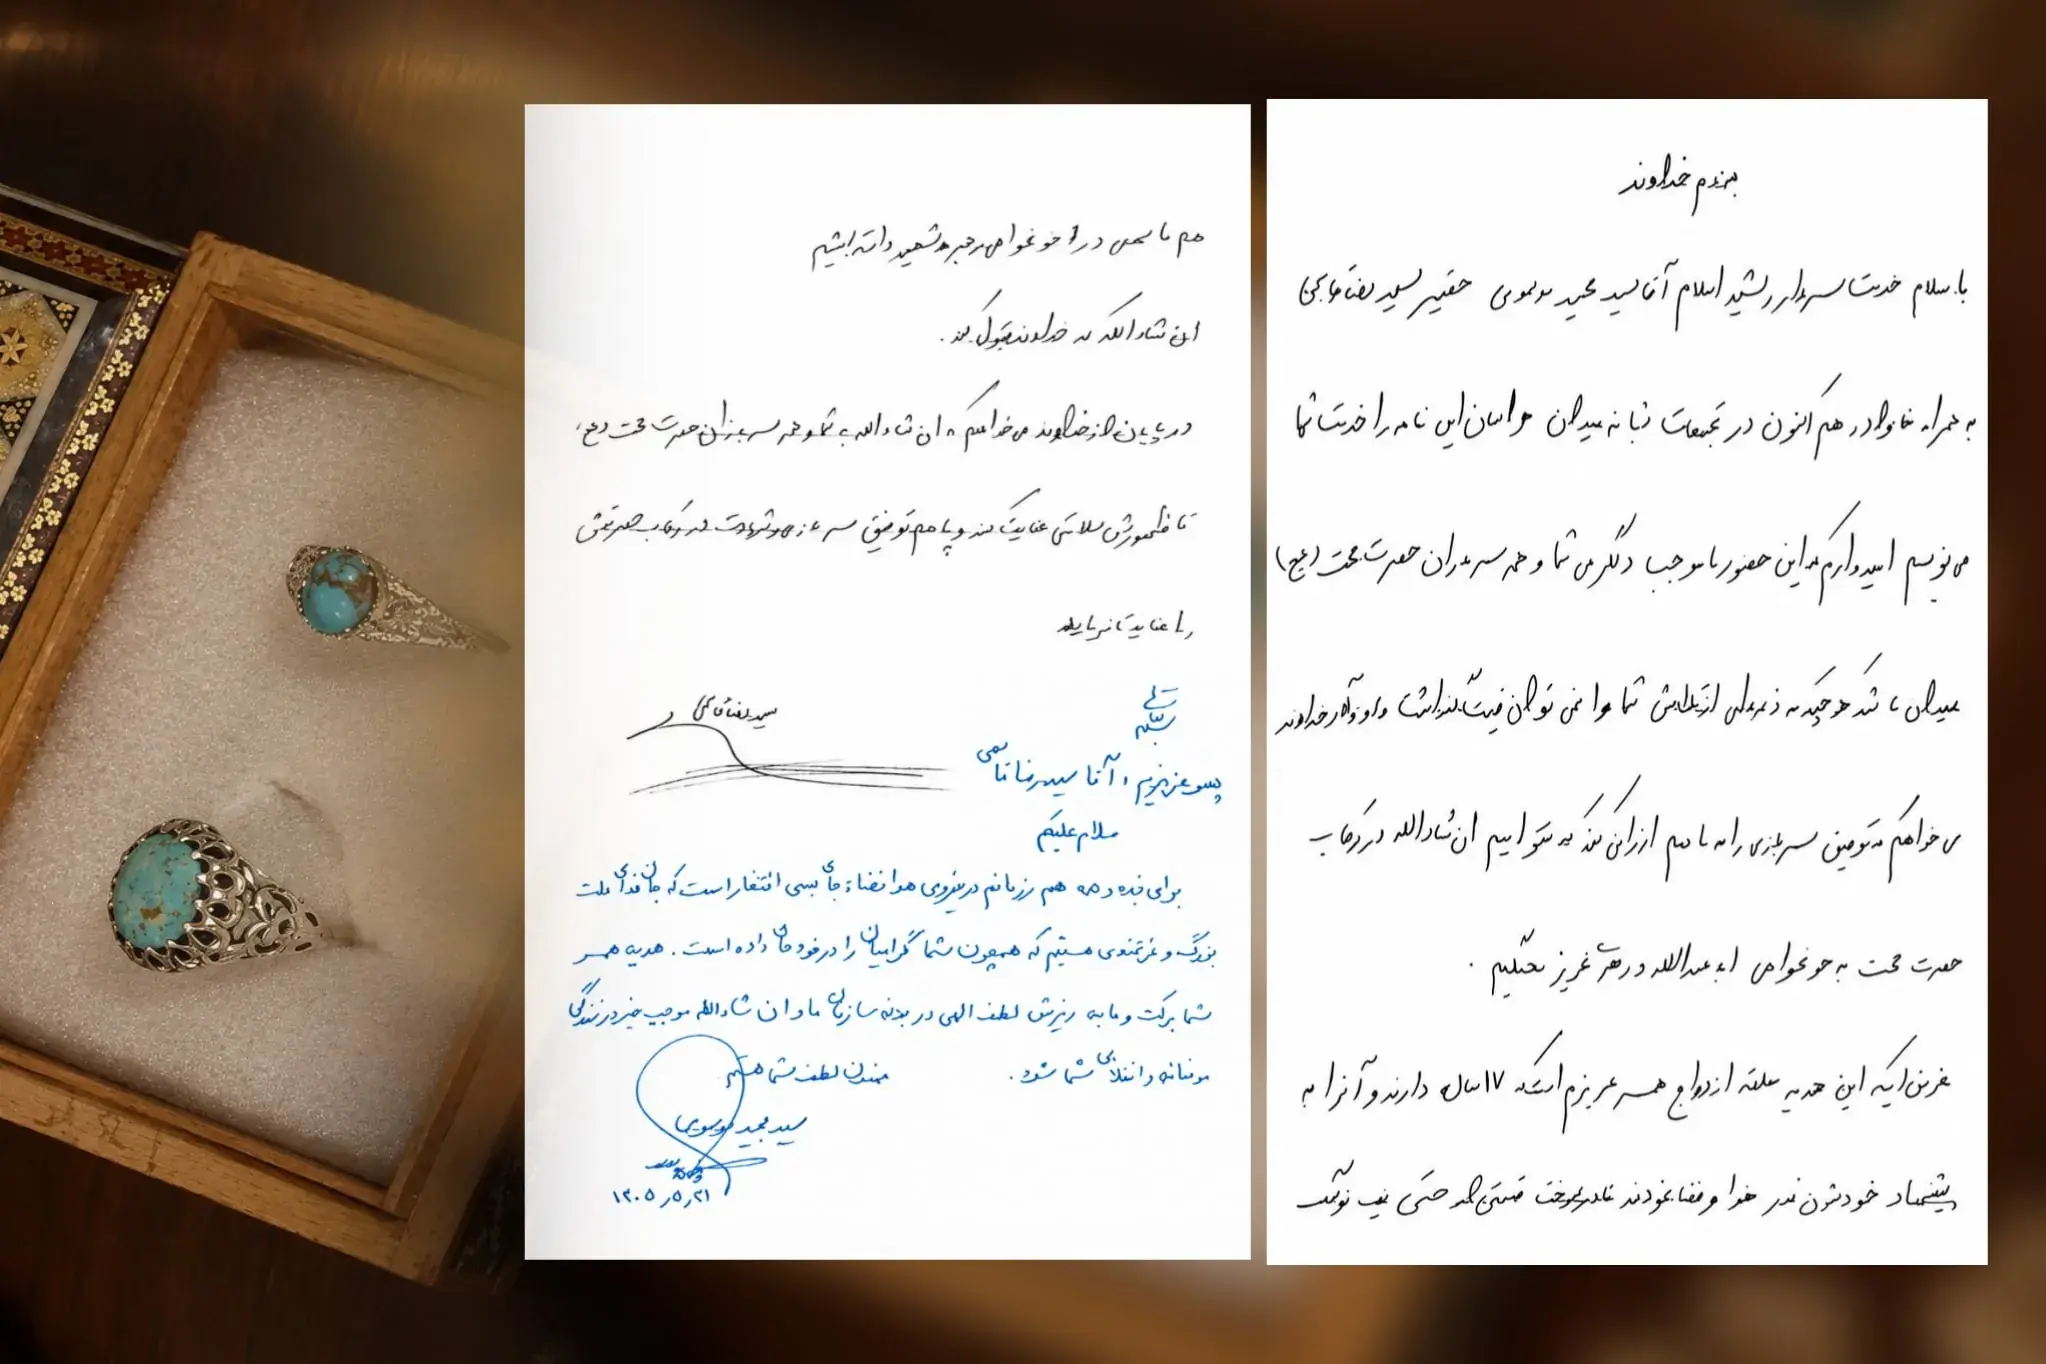 بنام خداوند
با سلام خدمت سردار رشید اسلام آقا سید مجید موسوی حقیر سید رضا قاسمی
به همراه خانواده هم اکنون در تجمعات شبانه میدان این نامه را خدمت شما
می نویسم امیدوارم که این حضور ما موجب دلگرمی شما و همه سربازان حضرت حجت (عج)
میدان باشد هر چند که ذره ای از شما را نمی توان قیمت گذاشت و از خداوند
می خواهم که توفیق سربازی را به ما هم ارزانی کند که بتوانیم ان شاء الله در رکاب
حضرت حجت به خونخواهی ابا عبدالله و رهبر عزیز بجنگیم .
غرض اینکه این هدیه حلقه ازدواج همسر عزیزم است که ۱۷ سال دارند و آنرا به
پیشنهاد خودشون نذر هوا و فضا نمودند
هم ما سهمی در خونخواهی رهبر شهید داشته باشیم
ان شاء الله که خداوند قبول کند .
در پایان از خداوند می خواهم که ان شاء الله به شما و همه سربازان حضرت حجت (عج)
تا ظهورش سلامتی عنایت کند و به ما هم توفیق سربازی و شهادت در رکاب حضرتش
را عنایت فرماید
سید رضا قاسمی
پسر عزیزم ، آقا سید رضا قاسمی
سلام علیکم
برای بنده و همه هم رزمانم در نیروی هوا فضا، جای بسی افتخار است که جان فدای ملت
بزرگ و عزتمندی هستیم که همچون شما گرامیان را در خود جای داده است . هدیه همسر
شما برکت و مایه ریزش لطف الهی در بدنه سازمان ما و ان شاء الله موجب خیر در زندگی
مومنانه و انقلابی شما شود . ممنون لطف شما هستم
سید مجید موسوی
۱۴۰۵ر۵ر۲۱